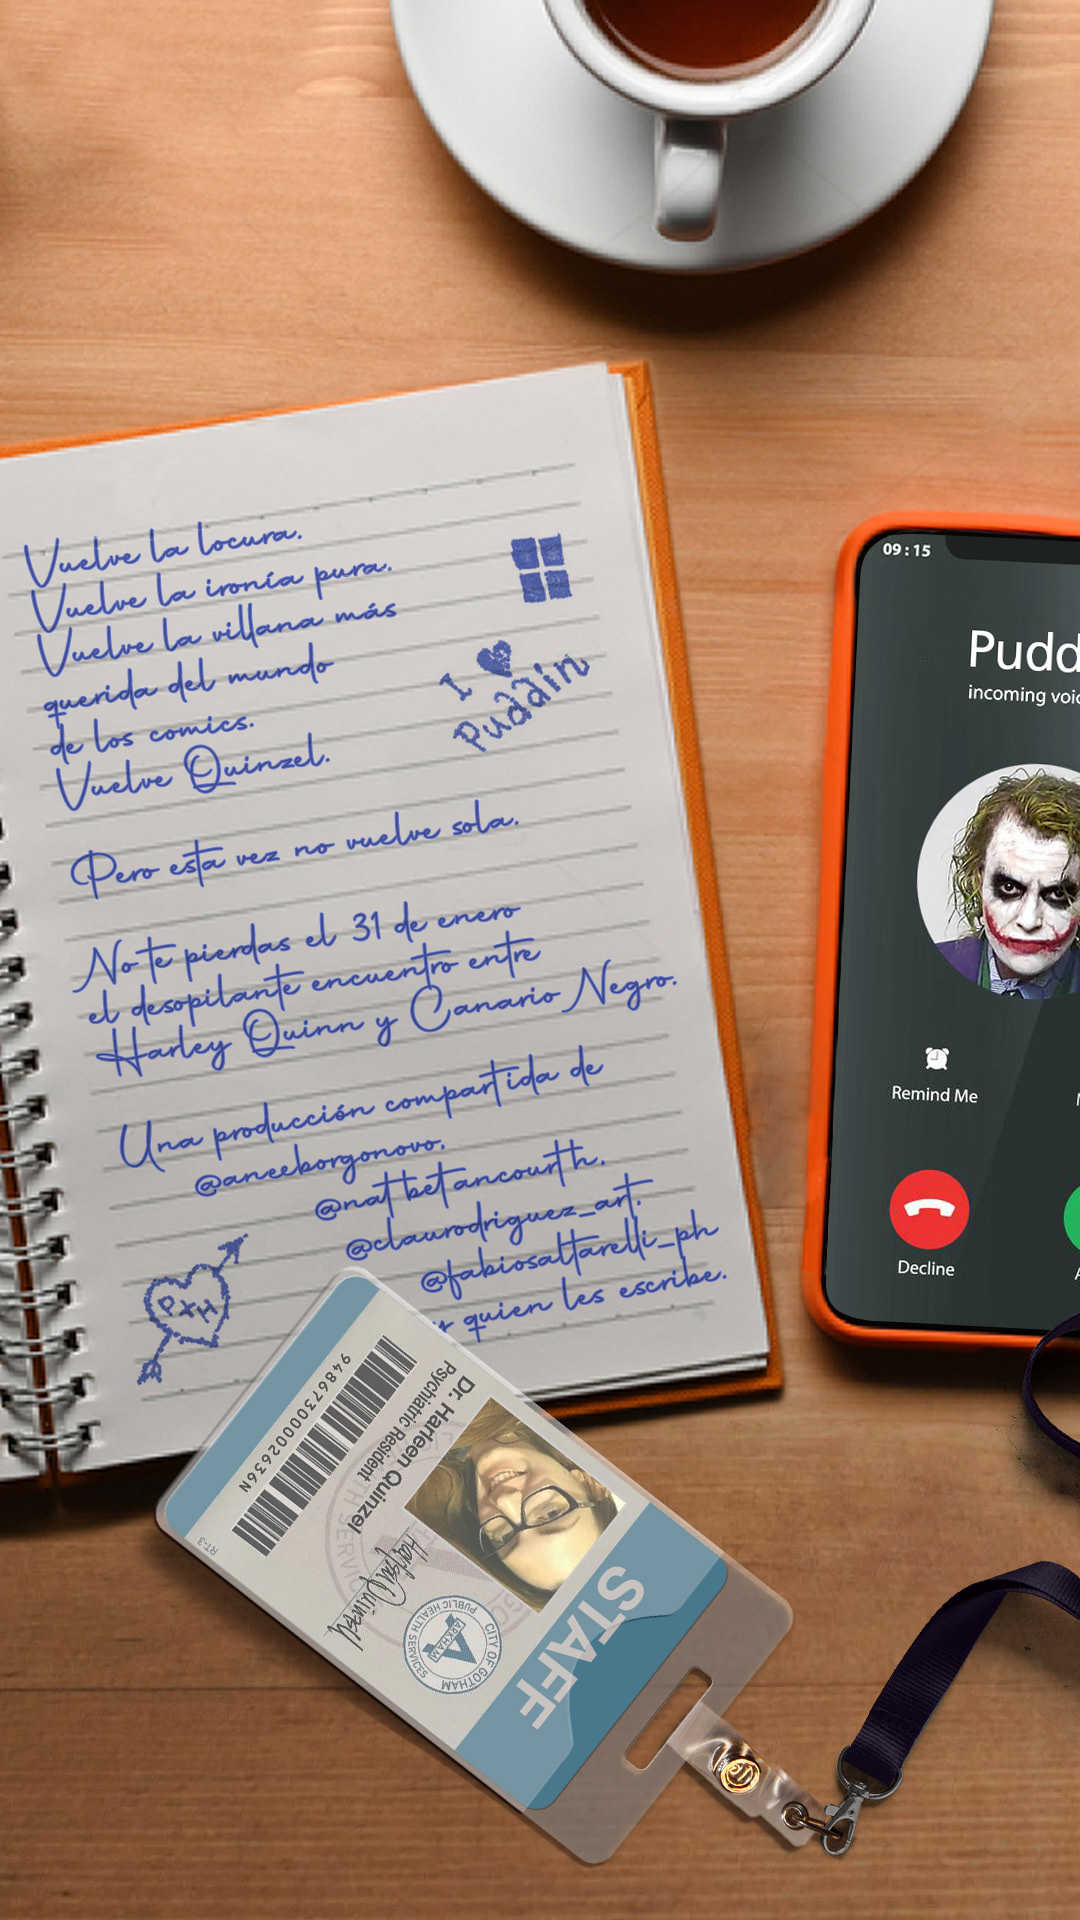 Vuelve la locura.
Vuelve la ironía pura.
Vuelve la villana más
querida del mundo
de los comics.
Vuelve Quinzel.
I ♥
Puddin
Pero esta vez no vuelve sola.
No te pierdas el 31 de enero
el desopilante encuentro entre
Harley Quinn y Canario Negro.
Una producción compartida de
@aneeborgonovo.
@natbetancourth.
@claurodriguez_art.
@fabiosaltarelli_ph
y quien les escribe.
P x H
09:15
Pudd
incoming voic
Remind Me
Decline
Dr. Harleen Quinzel
Psychiatric Resident
94867300002636N
RT-3
Harleen Quinzel
CITY OF GOTHAM
PUBLIC HEALTH SERVICES
ARKHAM
STAFF